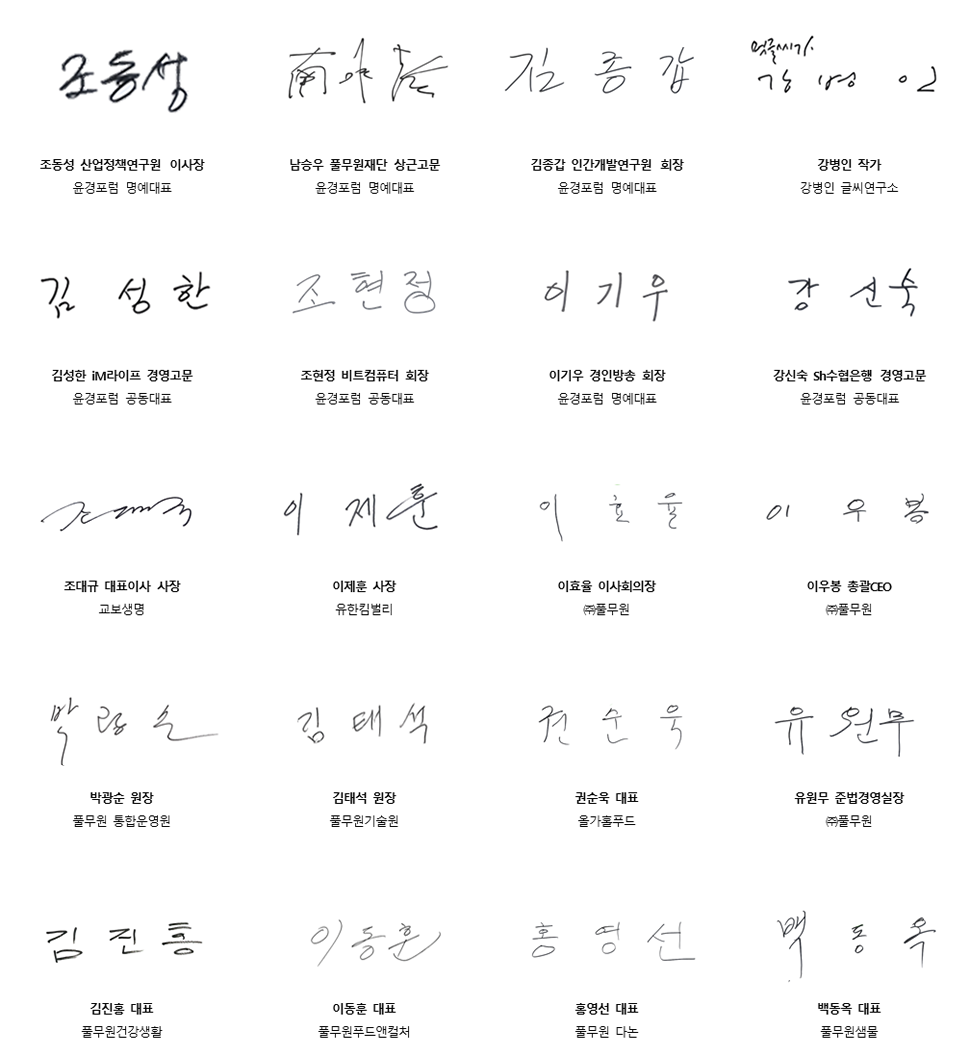 조동성
南升祐
김종갑
멋글씨가
강병인
조동성 산업정책연구원 이사장
윤경포럼 명예대표
남승우 풀무원재단 상근고문
윤경포럼 명예대표
김종갑 인간개발연구원 회장
윤경포럼 명예대표
강병인 작가
강병인 글씨연구소
김성한
조현정
이기우
강신숙
김성한 iM라이프 경영고문
윤경포럼 공동대표
조현정 비트컴퓨터 회장
윤경포럼 공동대표
이기우 경인방송 회장
윤경포럼 명예대표
강신숙 Sh수협은행 경영고문
윤경포럼 공동대표
조대규
이제훈
이효율
이우봉
조대규 대표이사 사장
교보생명
이제훈 사장
유한킴벌리
이효율 이사회의장
㈜풀무원
이우봉 총괄CEO
㈜풀무원
박광순
김태석
권순욱
유원무
박광순 원장
풀무원 통합운영원
김태석 원장
풀무원기술원
권순욱 대표
올가홀푸드
유원무 준법경영실장
㈜풀무원
김진홍
이동훈
홍영선
백동옥
김진홍 대표
풀무원건강생활
이동훈 대표
풀무원푸드앤컬처
홍영선 대표
풀무원 다논
백동옥 대표
풀무원샘물